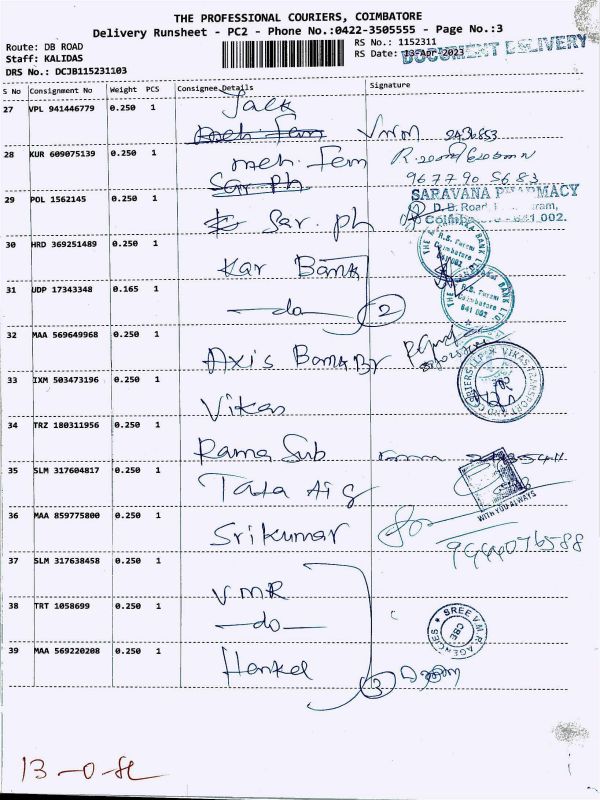 THE PROFESSIONAL COURIERS, COIMBATORE
Delivery Runsheet - PC2 - Phone No.:0422-3505555 - Page No.:3
Route: DB ROAD
Staff: KALIDAS
DRS No.: DCJB115231103
RS No.: 1152311
RS Date: 13-Apr-2023
DOCUMENT DELIVERY
S No Consignment No Weight PCS Consignee Details Signature
27 VPL 941446779 0.250 1
28 KUR 609075139 0.250 1 meh. Fem
9677905683
29 POL 1562145 0.250 1 Sar. ph
SARAVANA PHARMACY
D. B. Road
Coimbatore - 641 002.
30 HRD 369251489 0.250 1 Kar Bank
31 UDP 17343348 0.165 1 —do— 2
R.S. Puram
Coimbatore
641 002
32 MAA 569649968 0.250 1 Axis Bank Br
33 IXM 503473196 0.250 1 Vikas
34 TRZ 180311956 0.250 1 Rama Sub
35 SLM 317604817 0.250 1 Tata Aig
WITH YOU ALWAYS
36 MAA 859775800 0.250 1 Srikumar
9944076588
37 SLM 317638458 0.250 1 VMR
38 TRT 1058699 0.250 1 —do—
SREE V.M.R. AGENCIES
CBE
39 MAA 569220208 0.250 1 Henkel 3